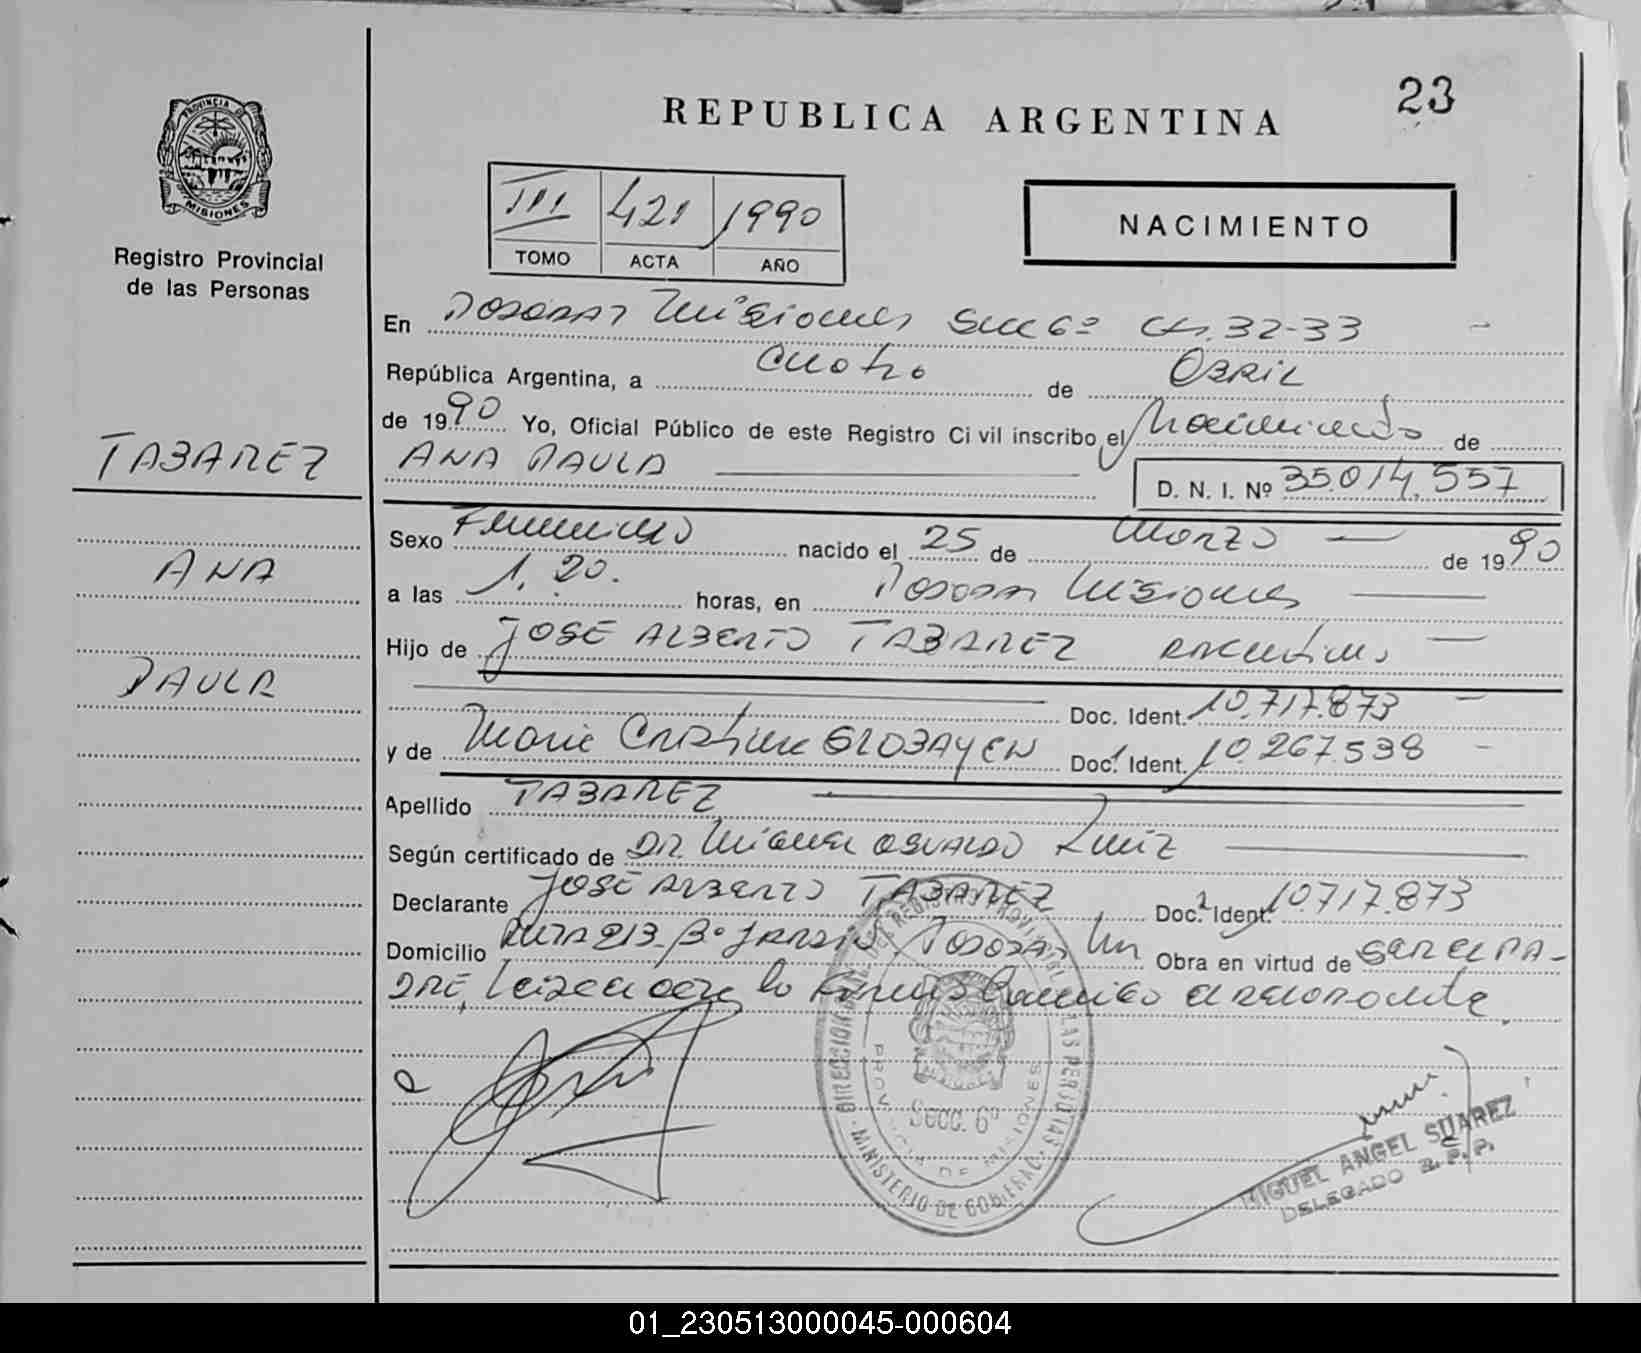 PROVINCIA DE
MISIONES
Registro Provincial
de las Personas
REPUBLICA ARGENTINA
23
III 421 1990
TOMO ACTA AÑO
NACIMIENTO
En Posadas Misiones Secc 6º 32-33
República Argentina, a cuatro de ABRIL
de 1990 Yo, Oficial Público de este Registro Civil inscribo el Nacimiento de
ANA PAULA D. N. I. Nº 35.014.557
TABAREZ
ANA
PAULA
Sexo Femenino nacido el 25 de Marzo de 1990
a las 1.20. horas, en Posadas Misiones
Hijo de JOSE ALBERTO TABAREZ argentino
Doc. Ident. 10.717.873
y de Maria Cristina Doc. Ident. 10.267.538
Apellido TABAREZ
Según certificado de DR. MIGUEL OSVALDO RUIZ
Declarante JOSE ALBERTO TABAREZ Doc. Ident. 10.717.873
Domicilio RUTA 213 Bº Posadas Mn Obra en virtud de SER EL PA-
DRE, Leida el acta la firma conmigo el declarante.
DIRECCION DEL REGISTRO PROVINCIAL DE LAS PERSONAS
PROVINCIA DE MISIONES
Secc. 6º
MINISTERIO DE GOBIERNO
MIGUEL ANGEL SUAREZ
DELEGADO R. P. P.
01_230513000045-000604